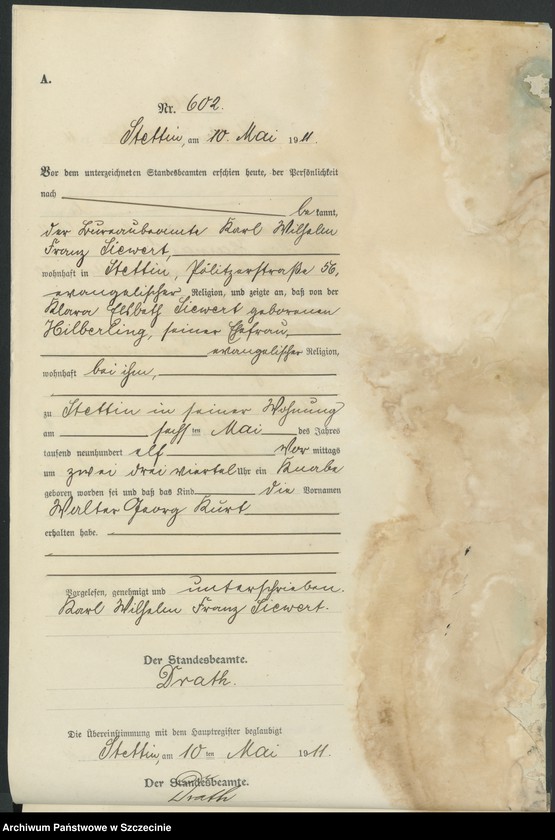 A.
Nr. 602.
Stettin, am 10. Mai 1911.
Vor dem unterzeichneten Standesbeamten erschien heute, der Persönlichkeit
nach
bekannt,
der Bureaubeamte Karl Wilhelm
Franz Siewert,
wohnhaft in Stettin, Pölitzerstraße 56,
evangelischer Religion, und zeigte an, daß von der
Klara Elsbeth Siewert geborenen
Hilberling, seiner Ehefrau,
evangelischer Religion,
wohnhaft bei ihm,
zu Stettin in seiner Wohnung
am sechsten Mai des Jahres
tausend neunhundert elf Vormittags
um zwei dreiviertel Uhr ein Knabe
geboren worden sei und daß das Kind die Vornamen
Walter Georg Kurt
erhalten habe.
Vorgelesen, genehmigt und unterschrieben.
Karl Wilhelm Franz Siewert.
Der Standesbeamte.
Drath.
Die Übereinstimmung mit dem Hauptregister beglaubigt
Stettin, am 10ten Mai 1911.
Der Standesbeamte.
Drath
Archiwum Państwowe w Szczecinie